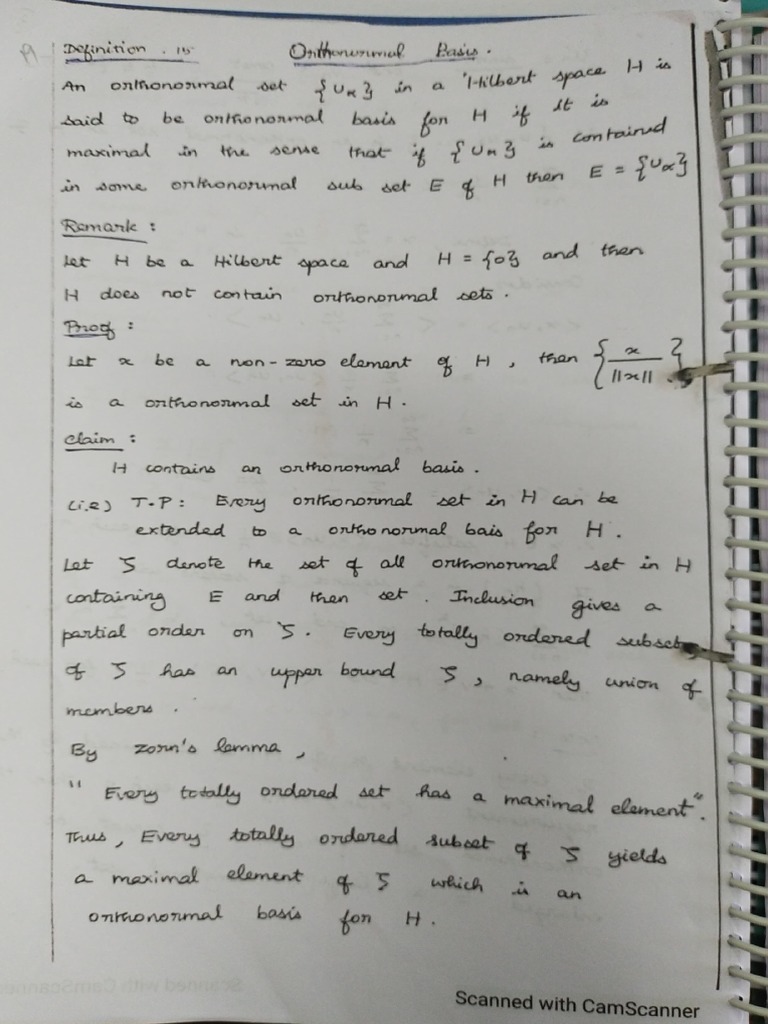 Definition. 15 Orthonormal Basis.
An orthonormal set {uα} in a Hilbert space H is
said to be orthonormal basis for H if it is
maximal in the sense that if {uα} is contained
in some orthonormal sub set E of H then E = {uα}
Remark :
Let H be a Hilbert space and H = {0} and then
H does not contain orthonormal sets.
Proof :
Let x be a non-zero element of H, then {x/||x||}
is a orthonormal set in H.
Claim :
H contains an orthonormal basis.
(i.e) T.P: Every orthonormal set in H can be
extended to a orthonormal bais for H.
Let ζ denote the set of all orthonormal set in H
containing E and then set. Inclusion gives a
partial order on ζ. Every totally ordered subset
of ζ has an upper bound ζ, namely union of
members.
By zorn's lemma,
" Every totally ordered set has a maximal element".
Thus, Every totally ordered subset of ζ yields
a maximal element of ζ which is an
orthonormal basis for H.
Scanned with CamScanner